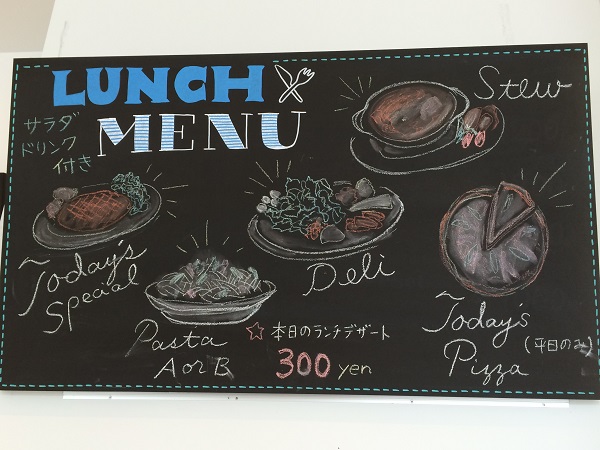 LUNCH
MENU
サラダ
ドリンク
付き
Stew
Today's
Special
Deli
Pasta
A or B
Today's
Pizza
(平日のみ)
☆ 本日のランチデザート
300 yen